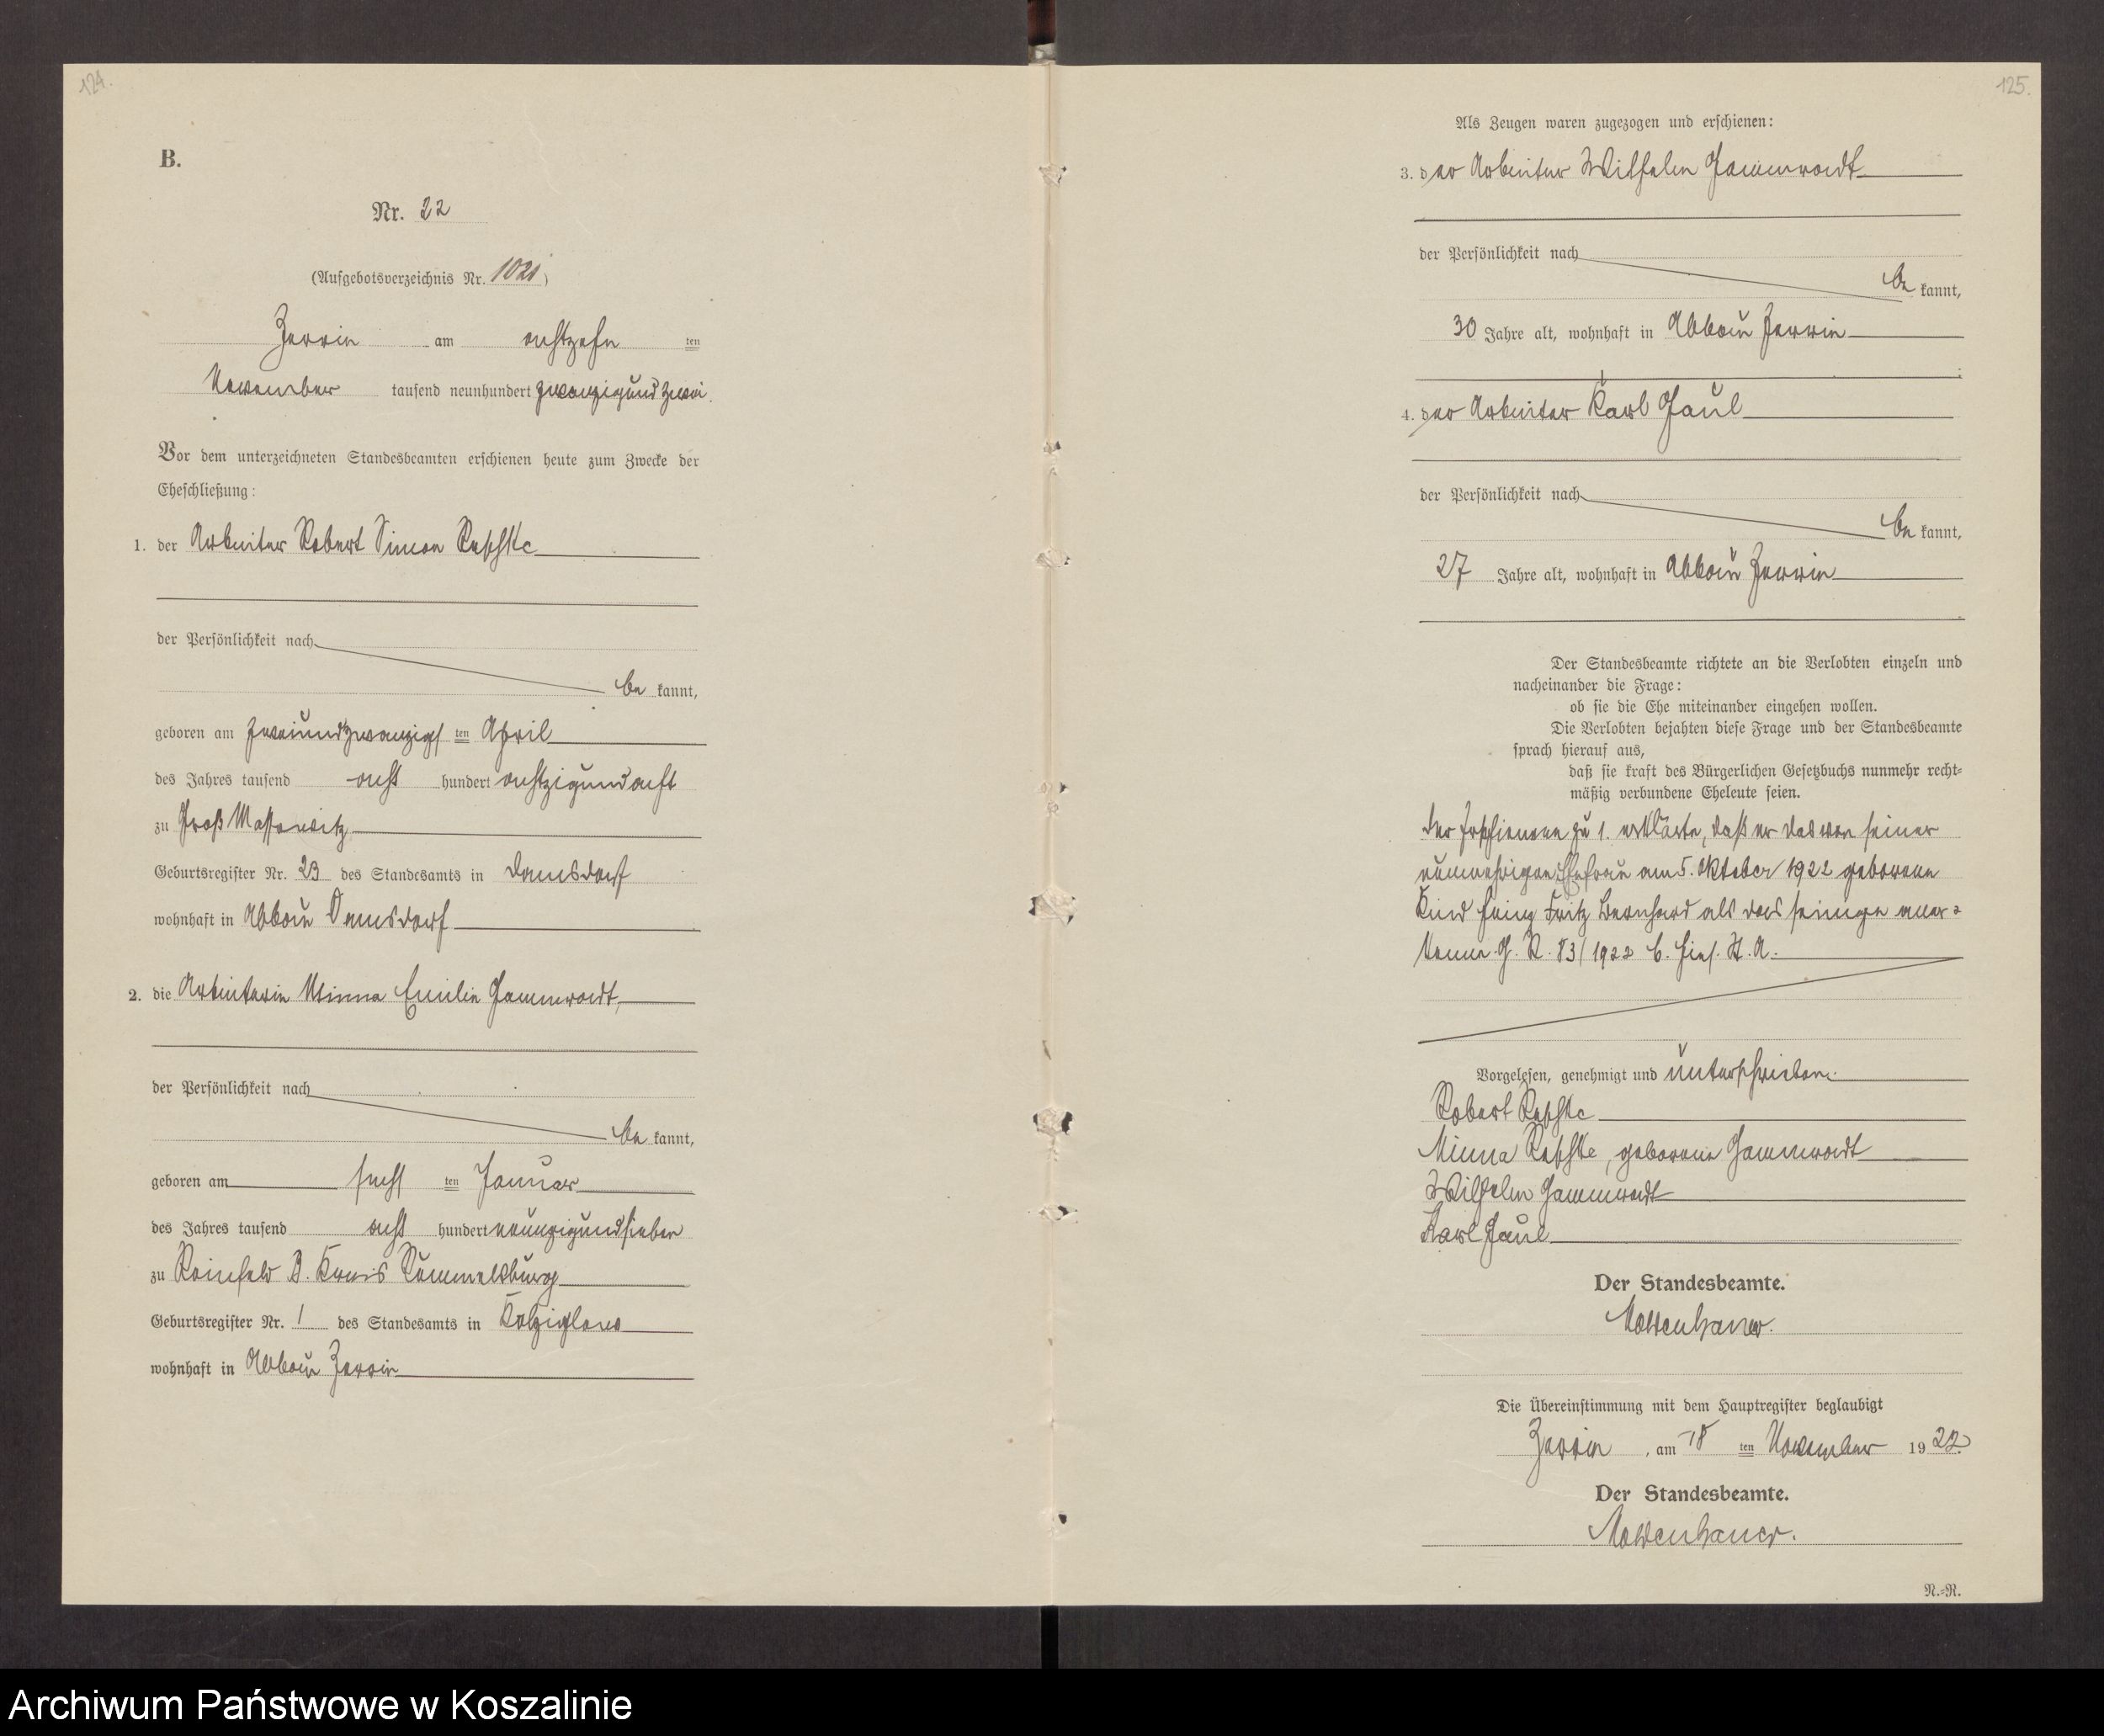 124.
B.
Nr. 22
(Aufgebotsverzeichnis Nr. 1021)
Zerrin am achtzehn ten
November tausend neunhundert zwanzigund zwei.
Vor dem unterzeichneten Standesbeamten erschienen heute zum Zwecke der
Eheschließung:
1. der Arbeiter Robert Simon Reschke
der Persönlichkeit nach
be kannt,
geboren am zweiundzwanzigs ten April
des Jahres tausend acht hundert achtzigundacht
zu Groß Massowitz
Geburtsregister Nr. 23 des Standesamts in Damsdorf
wohnhaft in Abbau Damsdorf
2. die Arbeiterin Minna Emilie
der Persönlichkeit nach
be kannt,
geboren am sechs ten Januar
des Jahres tausend acht hundert neunzigundsieben
zu Reinfeld B. Kreis Rummelsburg
Geburtsregister Nr. 1 des Standesamts in Kolziglow
wohnhaft in Abbau Zerrin
125.
Als Zeugen waren zugezogen und erschienen:
3. der Arbeiter Wilhelm
der Persönlichkeit nach
be kannt,
30 Jahre alt, wohnhaft in Abbau Zerrin
4. der Arbeiter Karl
der Persönlichkeit nach
be kannt,
27 Jahre alt, wohnhaft in Abbau Zerrin
Der Standesbeamte richtete an die Verlobten einzeln und
nacheinander die Frage:
ob sie die Ehe miteinander eingehen wollen.
Die Verlobten bejahten diese Frage und der Standesbeamte
sprach hierauf aus,
daß sie kraft des Bürgerlichen Gesetzbuchs nunmehr recht-
mäßig verbundene Eheleute seien.
Der Erschienene zu 1. erklärte, daß er das von seiner
nunmehrigen Ehefrau am 5. Oktober 1922 geborene
Kind Fritz Bernhard als das seinige aner-
kenne. G. R. 83/1922 b. hies. St. A.
Vorgelesen, genehmigt und unterschrieben.
Robert Reschke
Minna Reschke, geborene
Wilhelm
Karl
Der Standesbeamte.
Moldenhauer.
Die Übereinstimmung mit dem Hauptregister beglaubigt
Zerrin, am 18 ten November 1922.
Der Standesbeamte.
Moldenhauer.
N.-R.
Archiwum Państwowe w Koszalinie